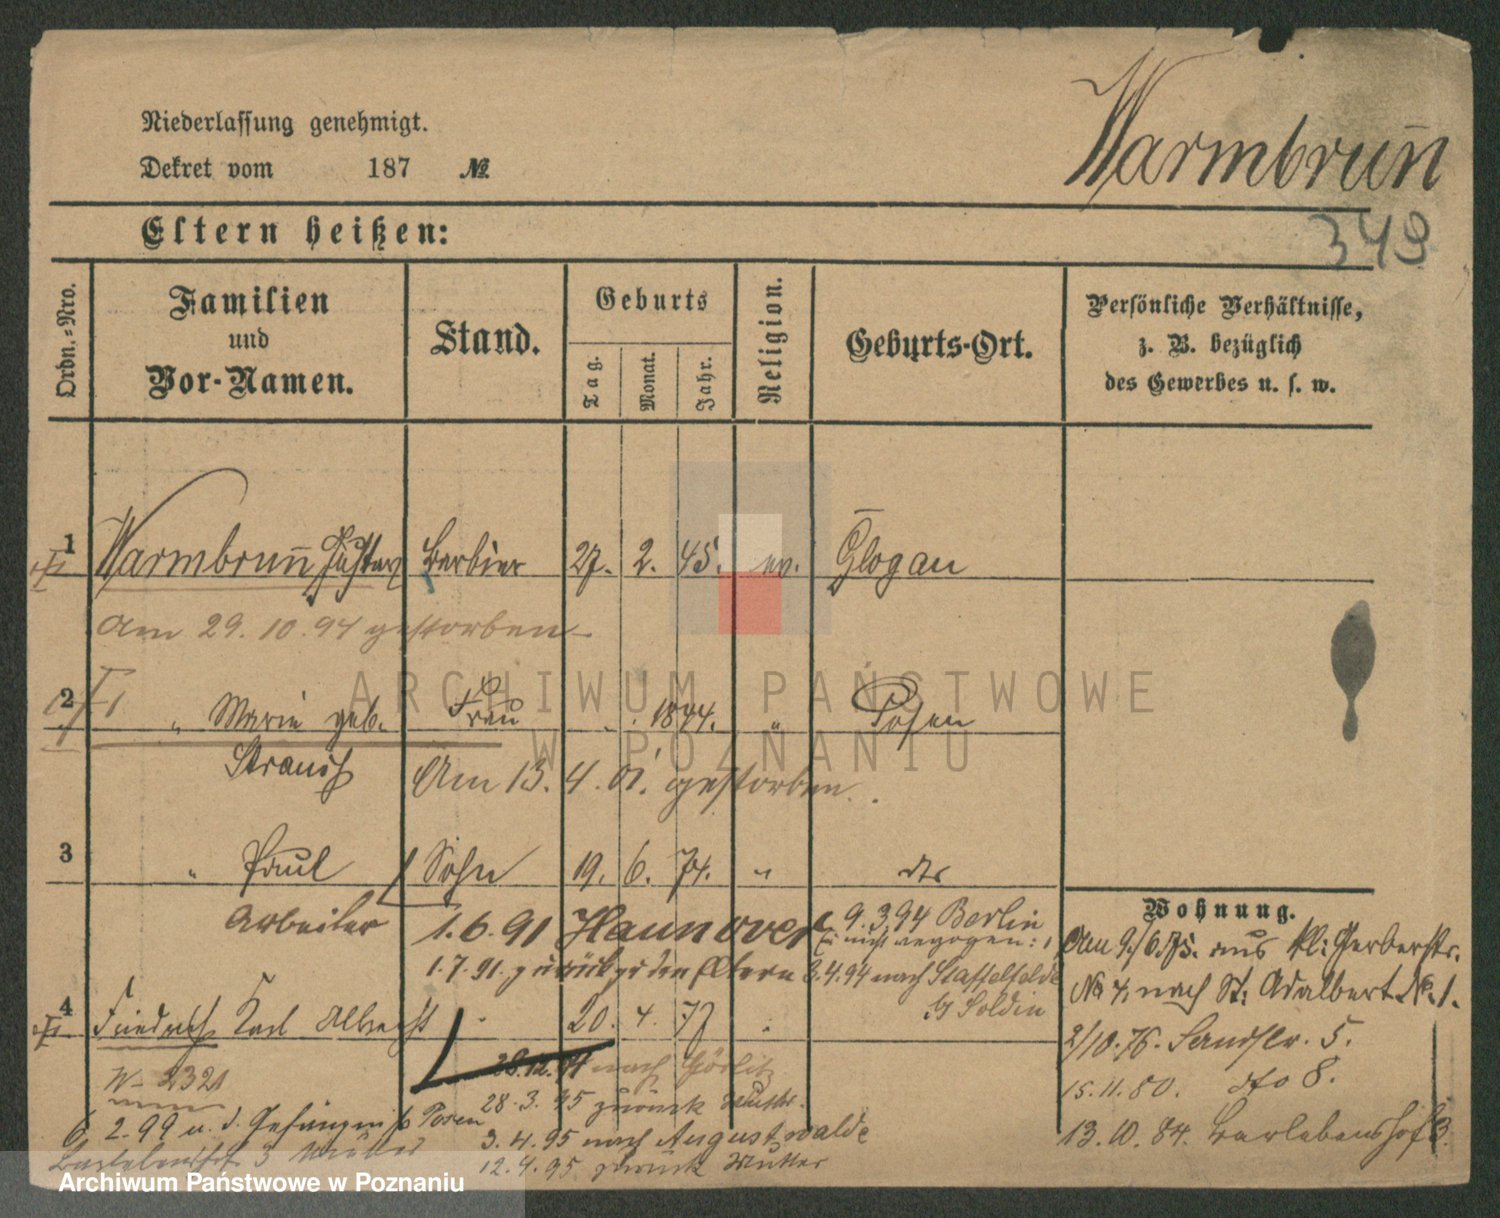 Niederlassung genehmigt.
Dekret vom 187 №
Warmbrun̄
349
Eltern heißen:
Ordn.-Nro.
Familien
und
Vor-Namen.
Stand.
Geburts
Tag.
Monat.
Jahr.
Religion.
Geburts-Ort.
Persönliche Verhältnisse,
z. B. bezüglich
des Gewerbes u. s. w.
1 Warmbrun̄ Gustav Barbier 27. 2. 45. ev. Glogau
Am 29. 10. 94 gestorben
2 " Marie geb. Frau 1844. " Posen
Strauch
Am 13. 4. 01. gestorben.
3 " Paul Sohn 19. 6. 74. " dto
Arbeiter
1. 6. 91 Hannover
9. 3. 94 Berlin
1. 7. 91. zurück zu den Eltern
3. 4. 94 nach Staffelfelde
Soldin
4 Friedrich Karl Albrecht 20. 4. 77
W - 2321
28. 12. 94 nach Görlitz
28. 3. 95 zurück Mutter
3. 4. 95 nach Augustwalde
12. 4. 95 zurück Mutter
6. 2. 99 a. d. Gefängniß Posen
3 Mutter
Wohnung.
Am 9./6. 75. aus kl. Gerberstr.
№ 4. nach St. Adalbert №. 1.
2/10. 76. Sandstr. 5.
15. 11. 80. dto 8.
13. 10. 84. Bartlebenshof 3.
ARCHIWUM PAŃSTWOWE
W POZNANIU
Archiwum Państwowe w Poznaniu